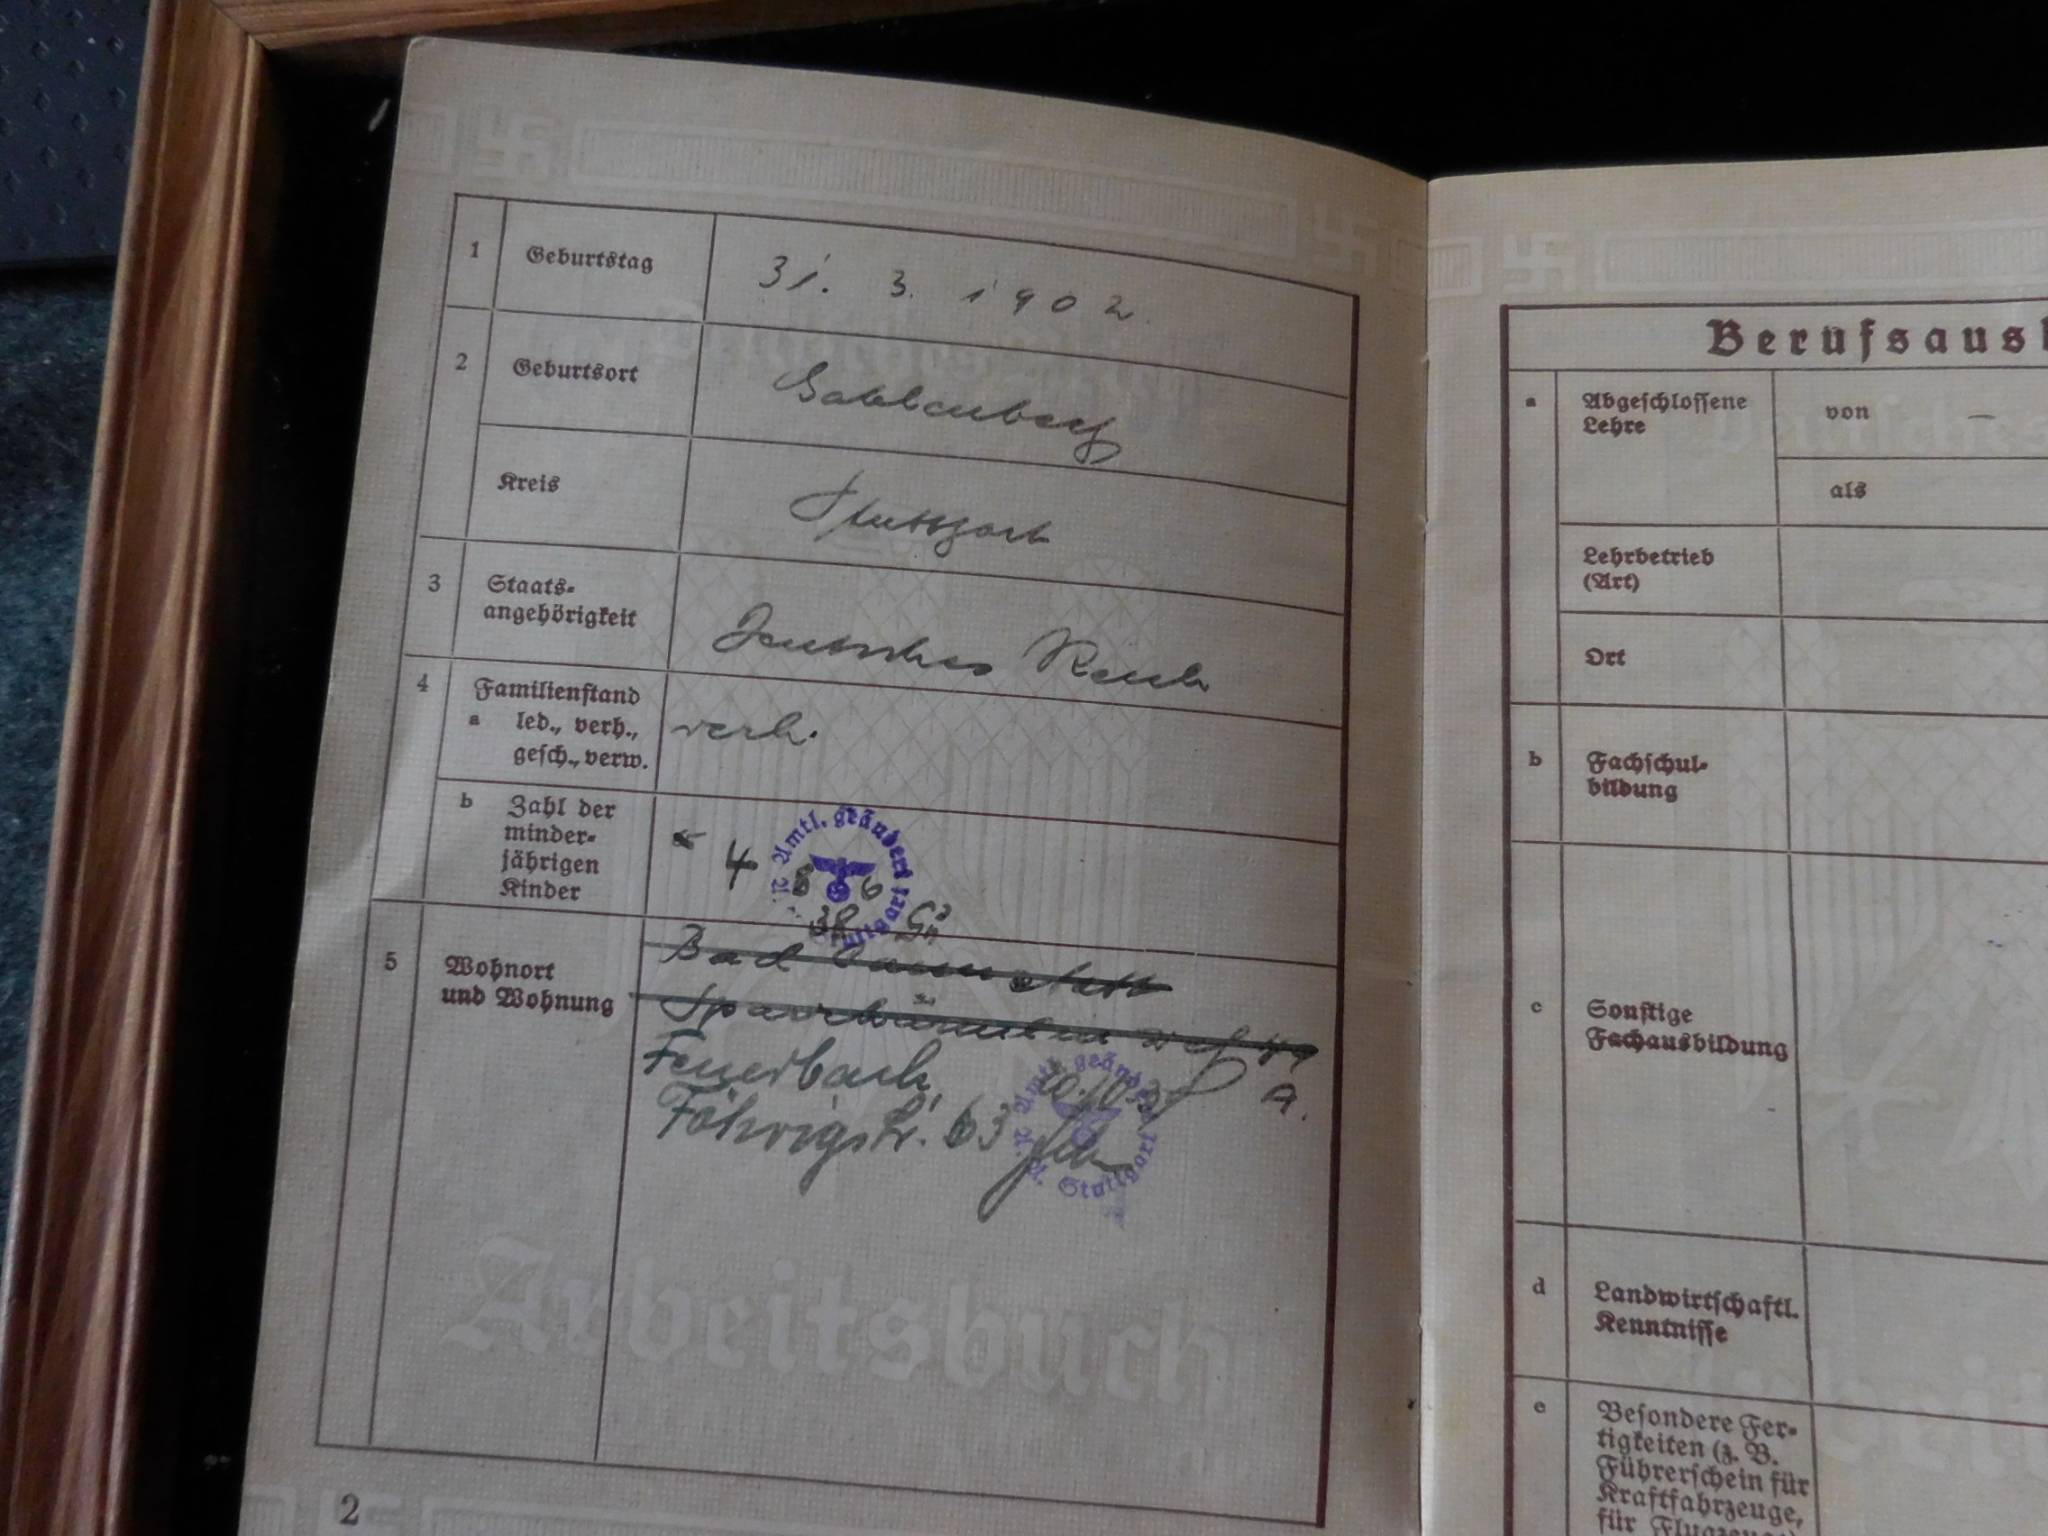 1 Geburtstag 31. 3. 1902.
2 Geburtsort
Kreis Stuttgart
3 Staats-
angehörigkeit Deutsches Reich
4 Familienstand
a led., verh., verh.
gesch., verw.
b Zahl der
minder-
jährigen
Kinder
4
Amtl. geändert
8 6
38
5 Wohnort
und Wohnung
Bad Cannstatt
49
Feuerbach
Föhrigstr. 63
A.
Amtl. geändert
A. A. Stuttgart
Arbeitsbuch
2
Berufsaus
a Abgeschlossene
Lehre
von -
als
Lehrbetrieb
(Art)
Ort
b Fachschul-
bildung
c Sonstige
Fachausbildung
d Landwirtschaftl.
Kenntnisse
e Besondere Fer-
tigkeiten (z. B.
Führerschein für
Kraftfahrzeuge,
für Flugzeuge)